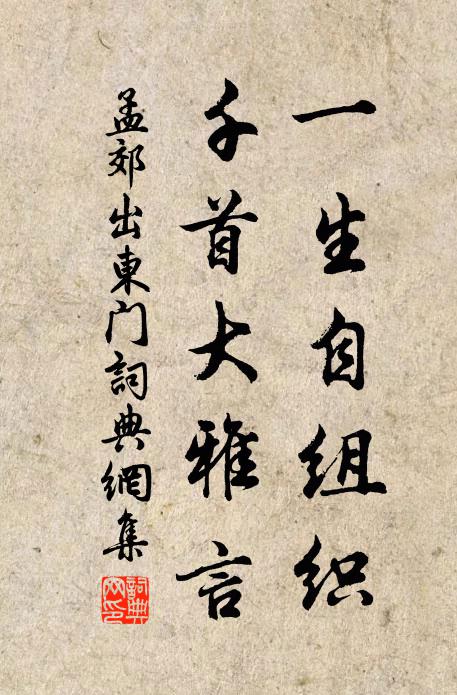 一生自组织
千首大雅言
孟郊出東门詞典網集
詞典網印